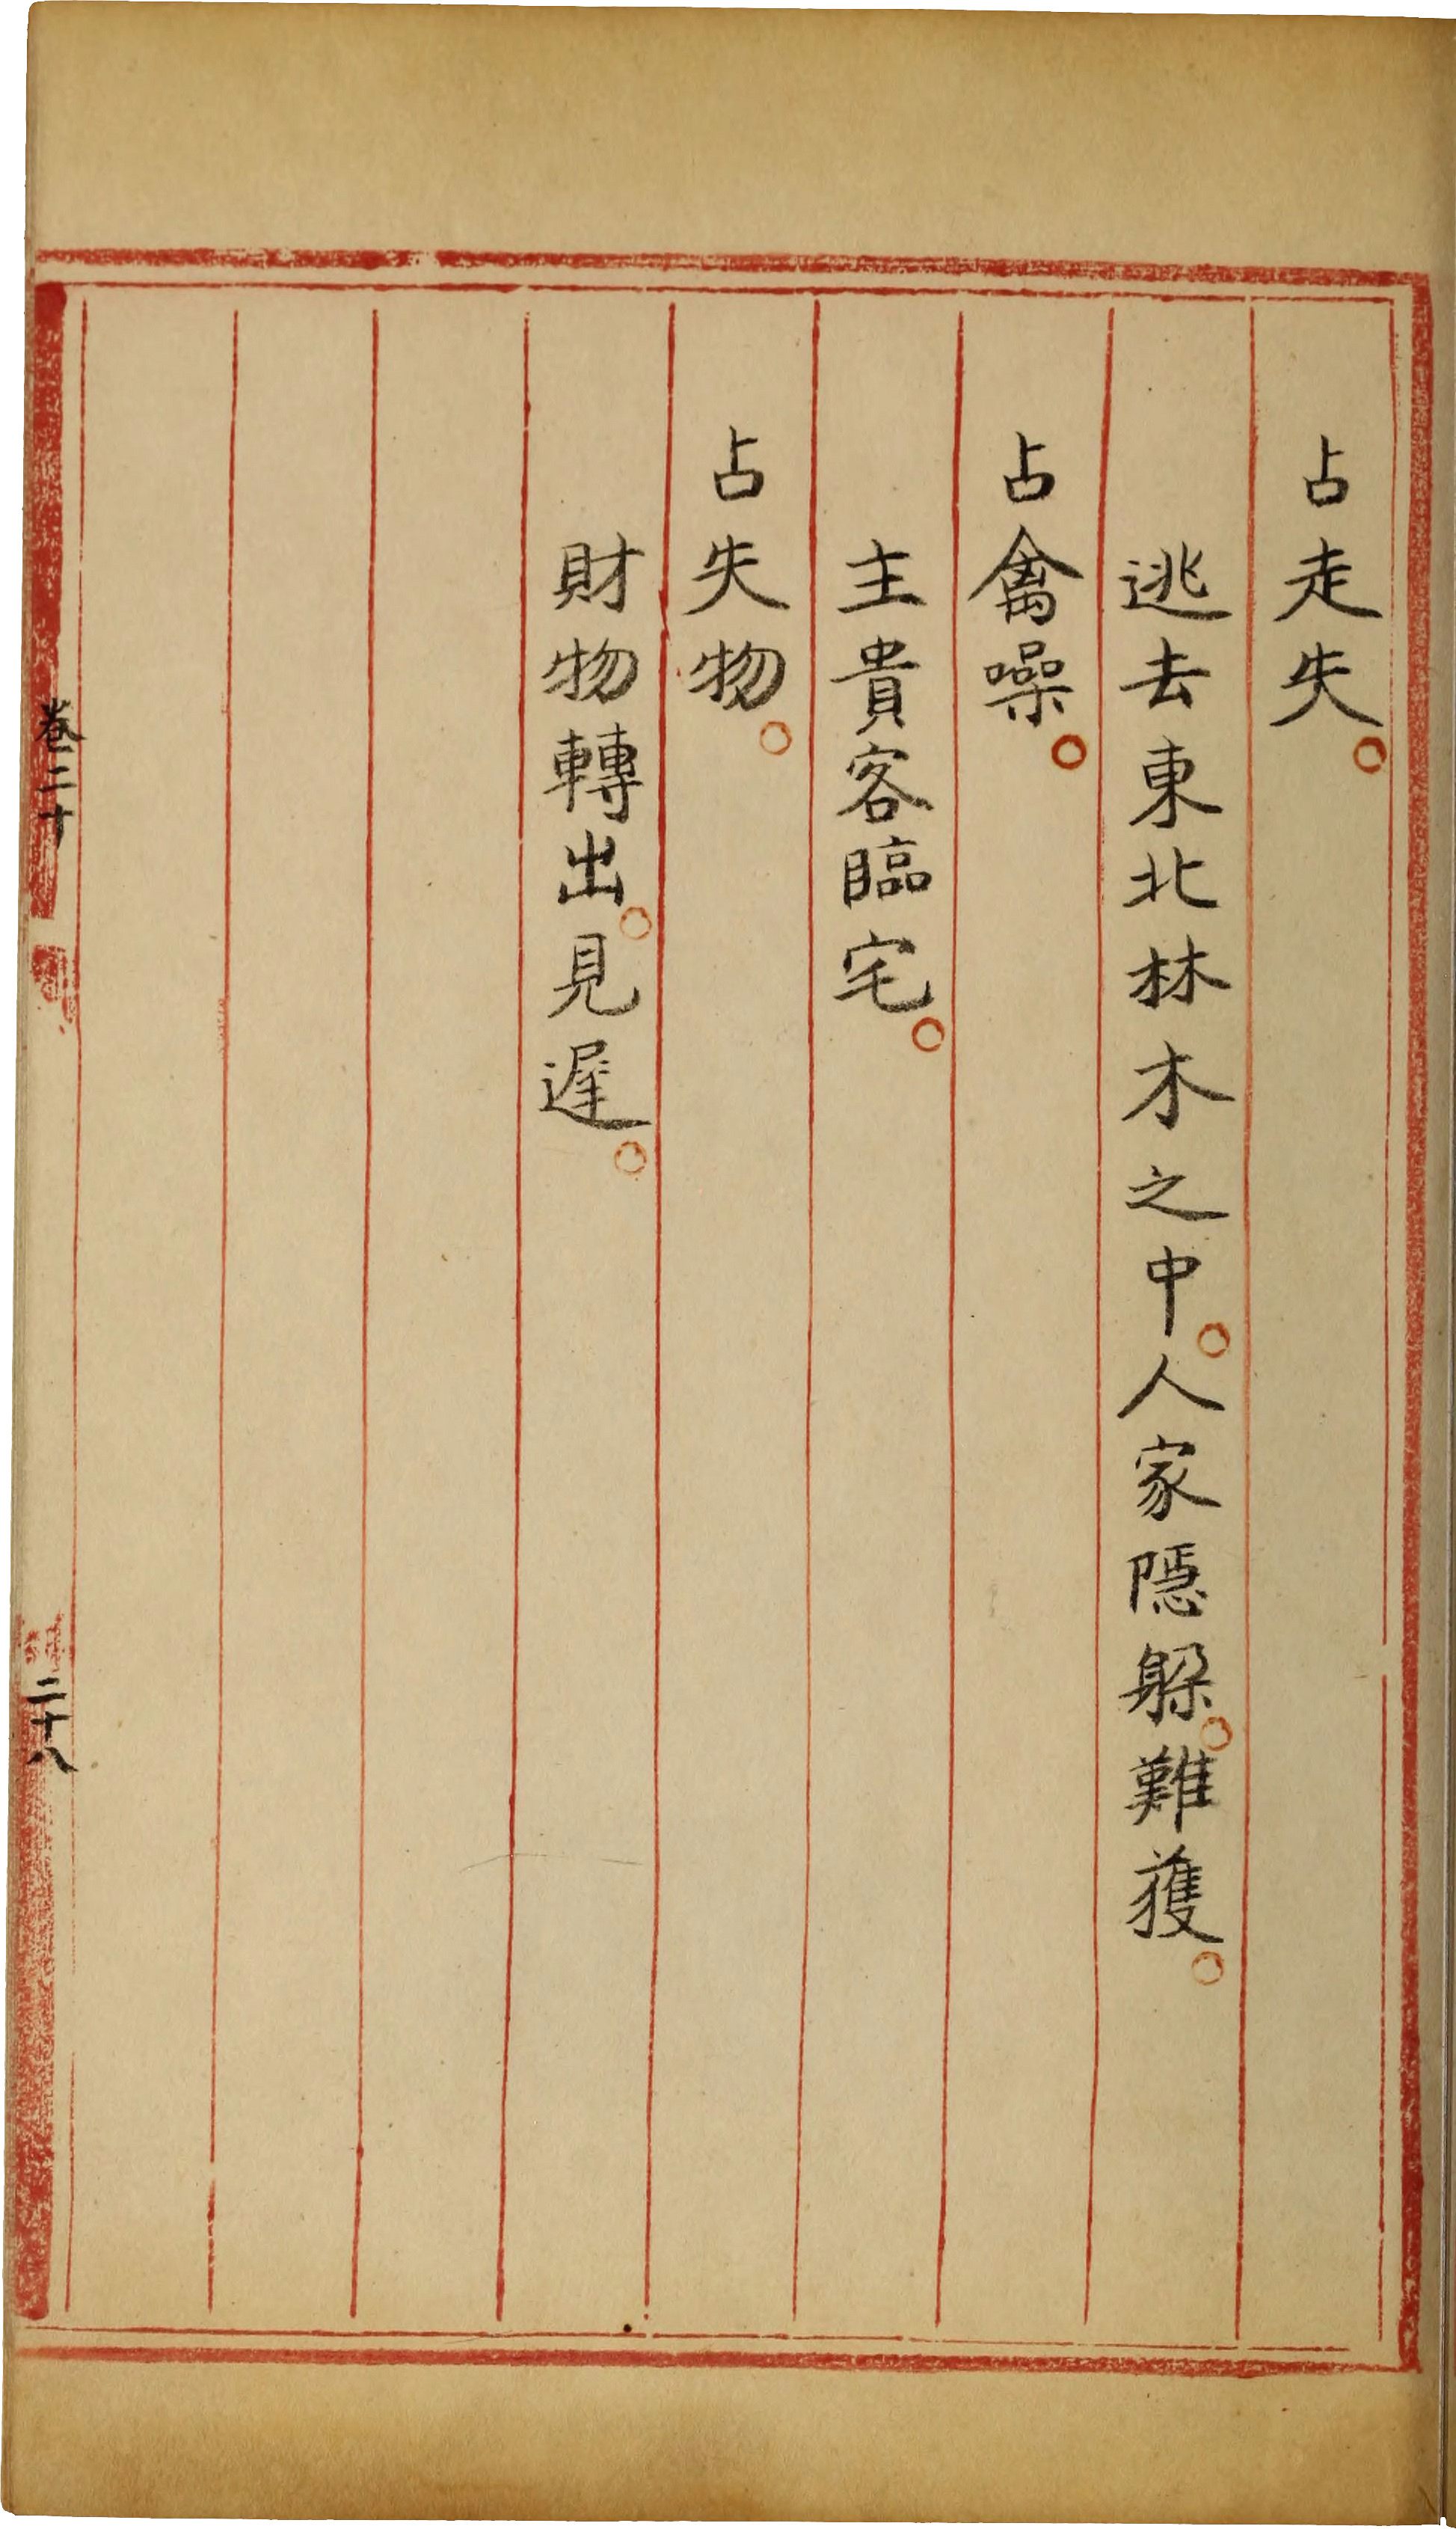 占走失。
逃去東北林木之中。人家隱躲。難獲。
占禽噪。
主貴客臨宅。
占失物。
財物轉出。見遲。
卷二十
二十八